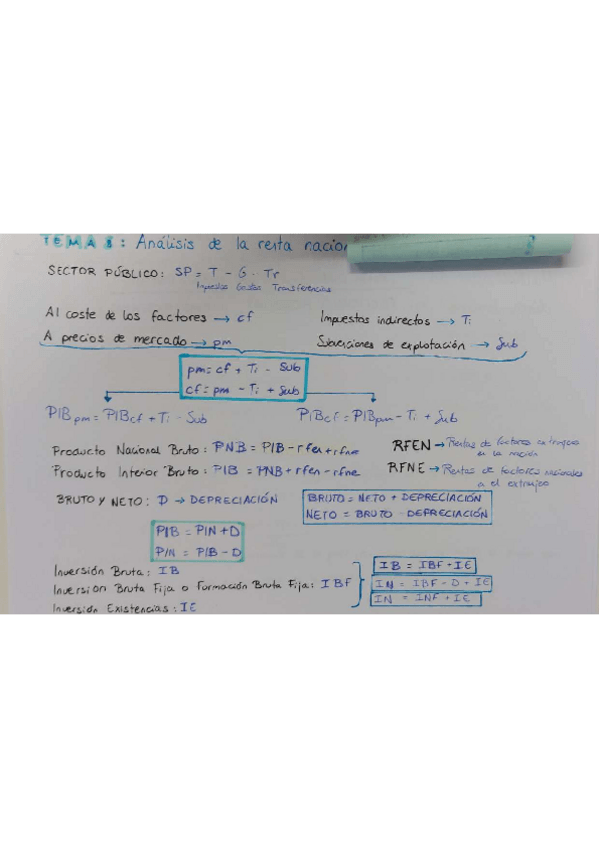 TEMA 8: Análisis de la renta nacion
SECTOR PÚBLICO: SP = T - G - Tr
Impuestos Gastos Transferencias
Al coste de los factores → cf
Impuestos indirectos → Ti
A precios de mercado → pm
Subvenciones de explotación → Sub
pm = cf + Ti - Sub
cf = pm - Ti + Sub
PIBpm = PIBcf + Ti - Sub
PIBcf = PIBpm - Ti + Sub
Producto Nacional Bruto: PNB = PIB - rfen + rfne
RFEN → Rentas de factores extranjeros en la nación
Producto Interior Bruto: PIB = PNB + rfen - rfne
RFNE → Rentas de factores nacionales en el extranjero
BRUTO Y NETO: D → DEPRECIACIÓN
BRUTO = NETO + DEPRECIACIÓN
NETO = BRUTO - DEPRECIACIÓN
PIB = PIN + D
PIN = PIB - D
Inversión Bruta: IB
Inversión Bruta Fija o Formación Bruta Fija: IBF
Inversión Existencias: IE
IB = IBF + IE
IN = IBF - D + IE
IN = INF + IE